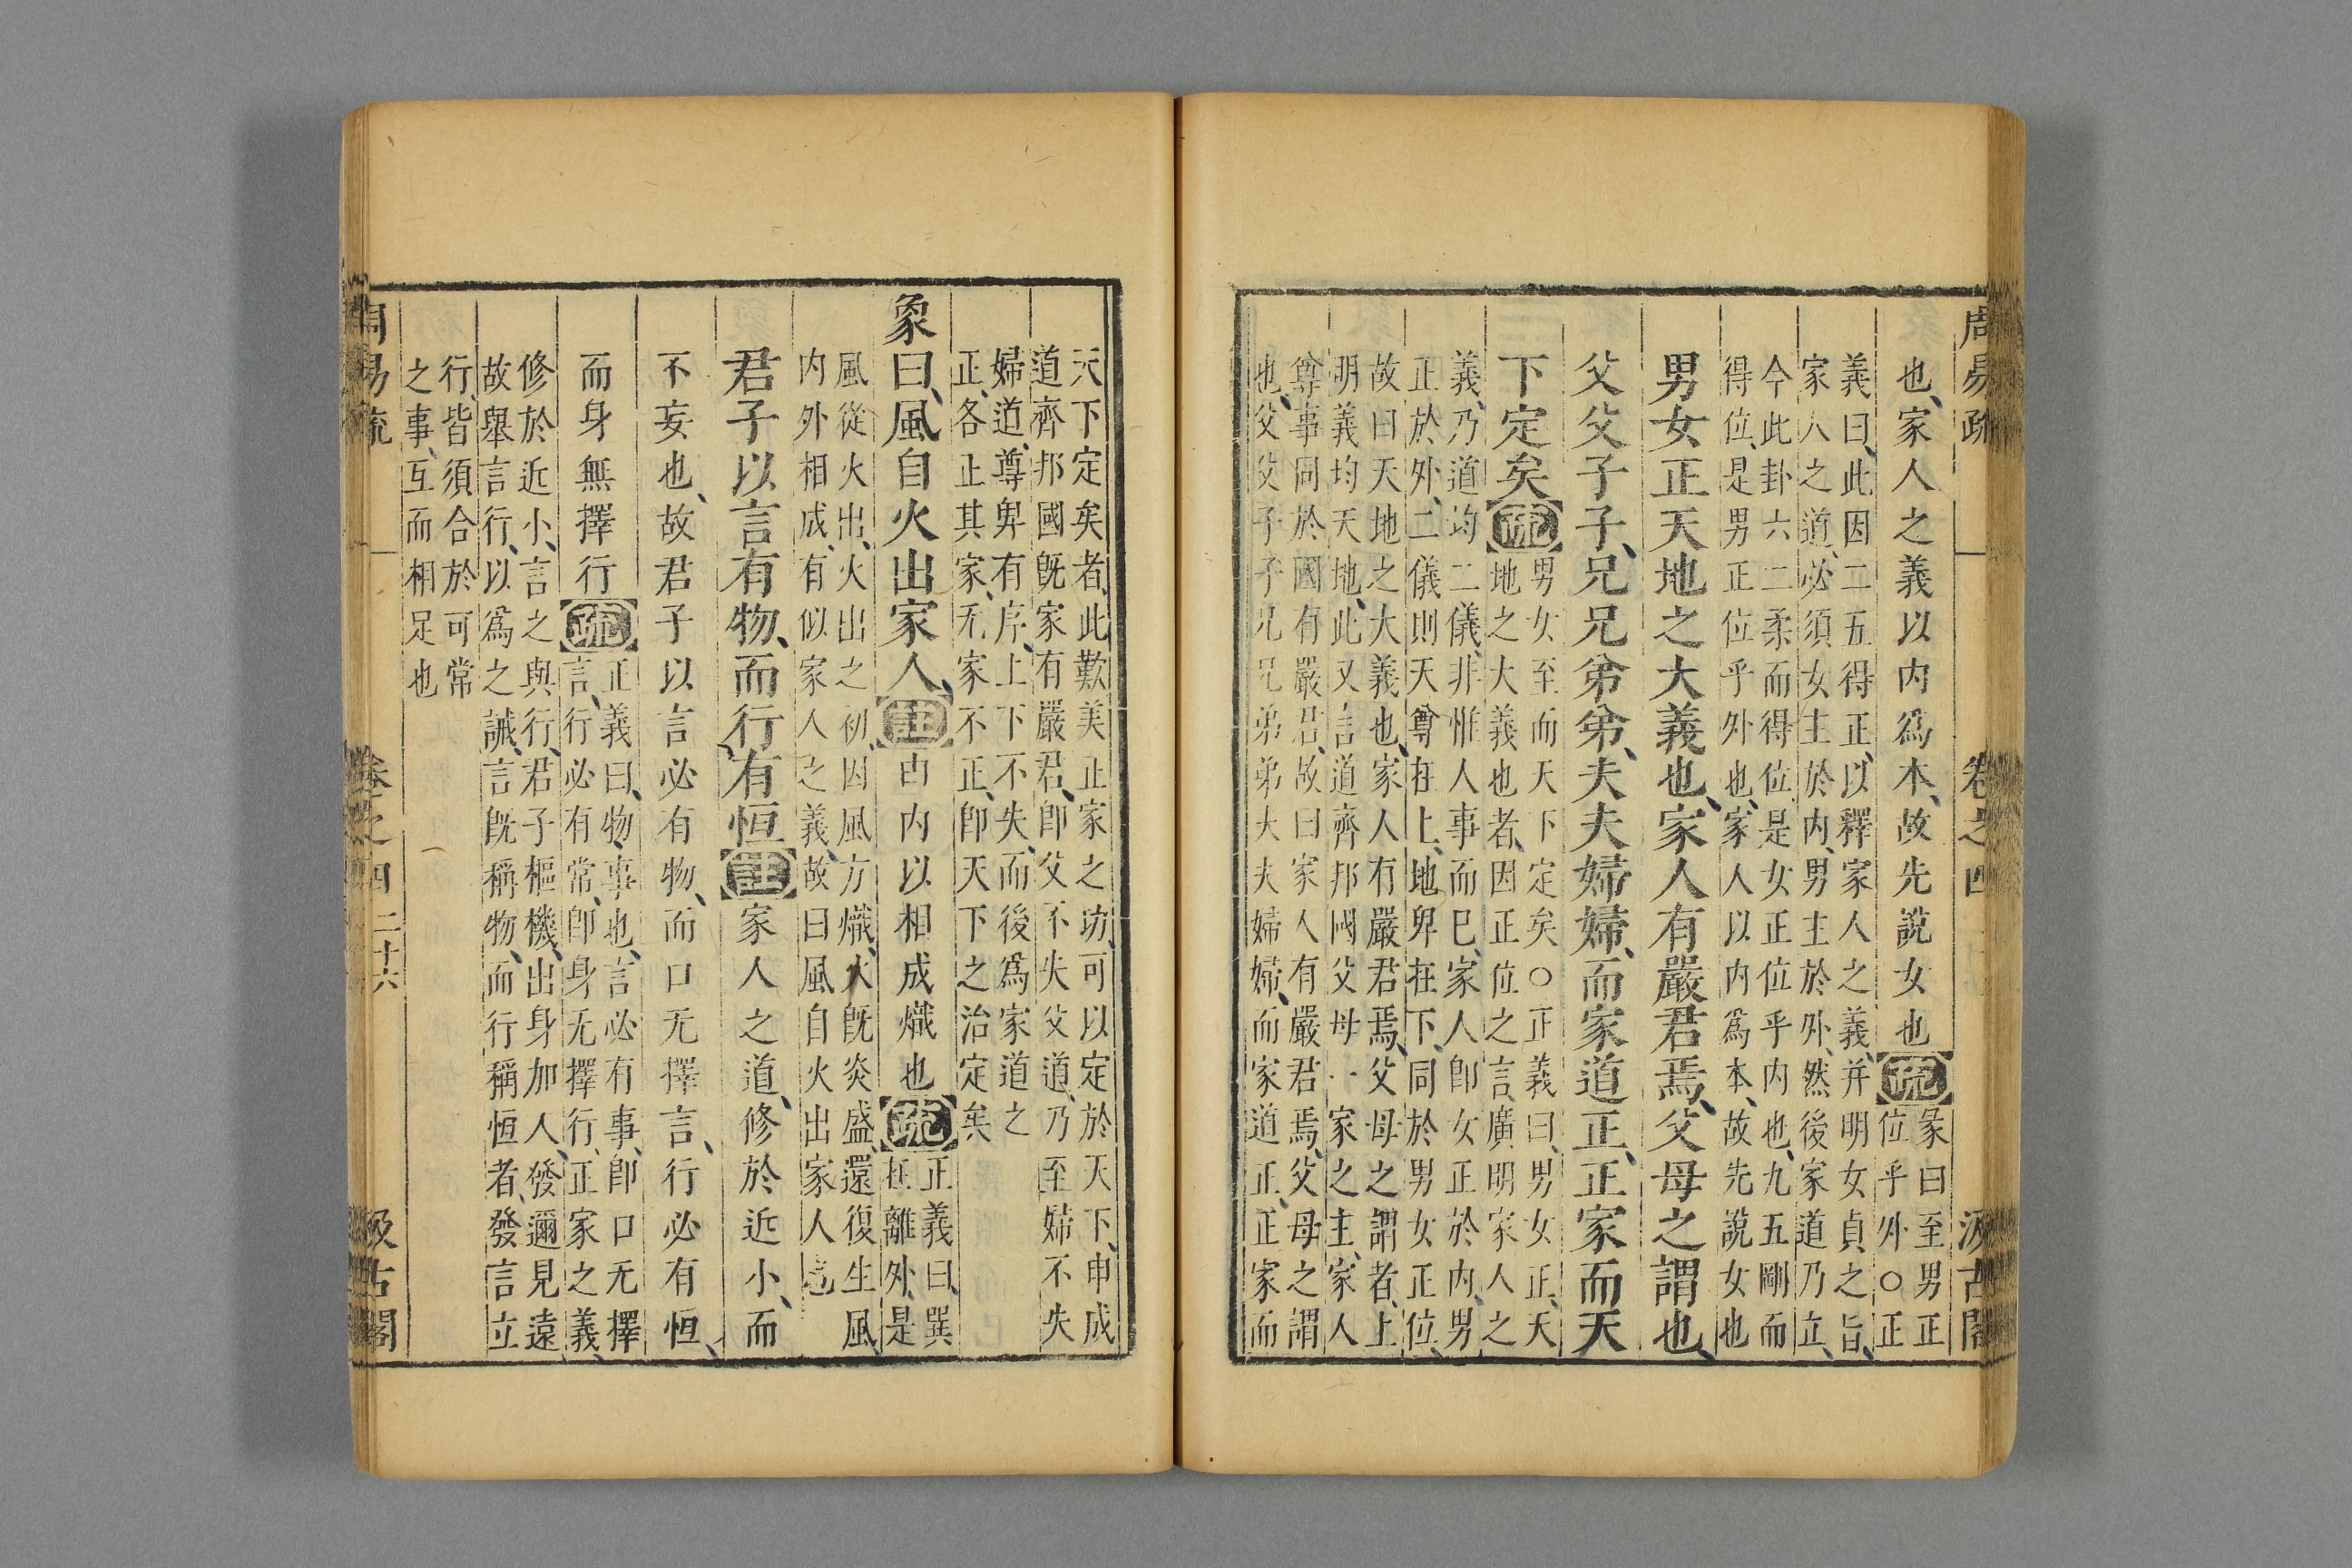 周易疏
卷之四
汲古閣
也、家人之義以内爲本、故先說女也疏彖曰至男正
位乎外○正
義曰、此因二五得正、以釋家人之義、并明女貞之旨、
家人之道、必須女主於内、男主於外、然後家道乃立、
今此卦六二柔而得位、是女正位乎内也、九五剛而
得位、是男正位乎外也、家人以内爲本、故先說女也
男女正天地之大義也、家人有嚴君焉、父母之謂也、
父父子子、兄兄弟弟、夫夫婦婦、而家道正、正家而天
下定矣疏男女至而天下定矣○正義曰、男女正、天
地之大義也者、因正位之言、廣明家人之
義、乃道均二儀、非惟人事而已、家人卽女正於内、男
正於外、二儀則天尊在上、地卑在下、同於男女正位、
故曰天地之大義也、家人有嚴君焉、父母之謂者、上
明義均天地、此又言道齊邦國父母一家之主、家人
尊事同於國有嚴君、故曰家人有嚴君焉、父母之謂
也、父父子子兄兄弟弟夫夫婦婦、而家道正、正家而
天下定矣者、此歎美正家之功、可以定於天下、申成
道齊邦國旣家有嚴君、卽父不失父道、乃至婦不失
婦道、尊卑有序、上下不失、而後爲家道之
正、各正其家、无家不正、卽天下之治定矣
象曰、風自火出家人、註由内以相成熾也疏正義曰、巽
在離外、是
風從火出、火出之初、因風方熾、火旣炎盛、還復生風、
内外相成、有似家人之義、故曰風自火出家人也
君子以言有物、而行有恒註家人之道、修於近小、而
不妄也、故君子以言必有物、而口无擇言、行必有恒、
而身無擇行疏正義曰、物、事也、言必有事、卽口无擇
言、行必有常、卽身无擇行、正家之義、
修於近小、言之與行、君子樞機、出身加人、發邇見遠
故舉言行、以爲之誡、言旣稱物、而行稱恒者、發言立
行、皆須合於可常
之事、互而相足也
周易疏
卷之四
二十六
汲古閣